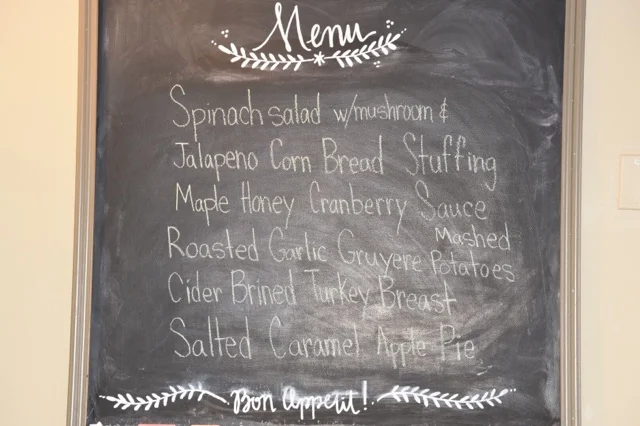 Menu
Spinach salad w/mushroom &
Jalapeno Corn Bread Stuffing
Maple Honey Cranberry Sauce
Roasted Garlic Gruyere Mashed Potatoes
Cider Brined Turkey Breast
Salted Caramel Apple Pie
Bon Appetit!